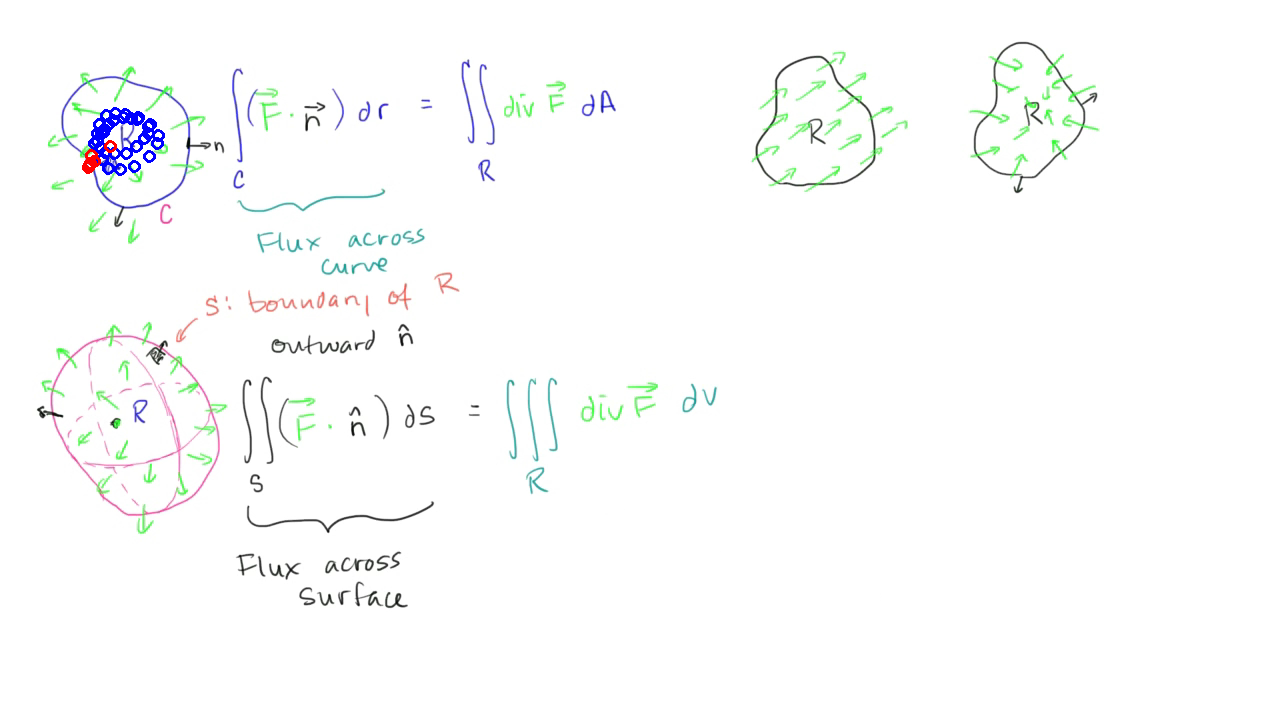 ∫_C (F⃗ · n⃗) dr = ∬_R div F⃗ dA
R
n
C
Flux across
curve
R
R
S: boundary of R
outward n̂
R
∬_S (F⃗ · n̂) ds = ∭_R div F⃗ dv
Flux across
surface